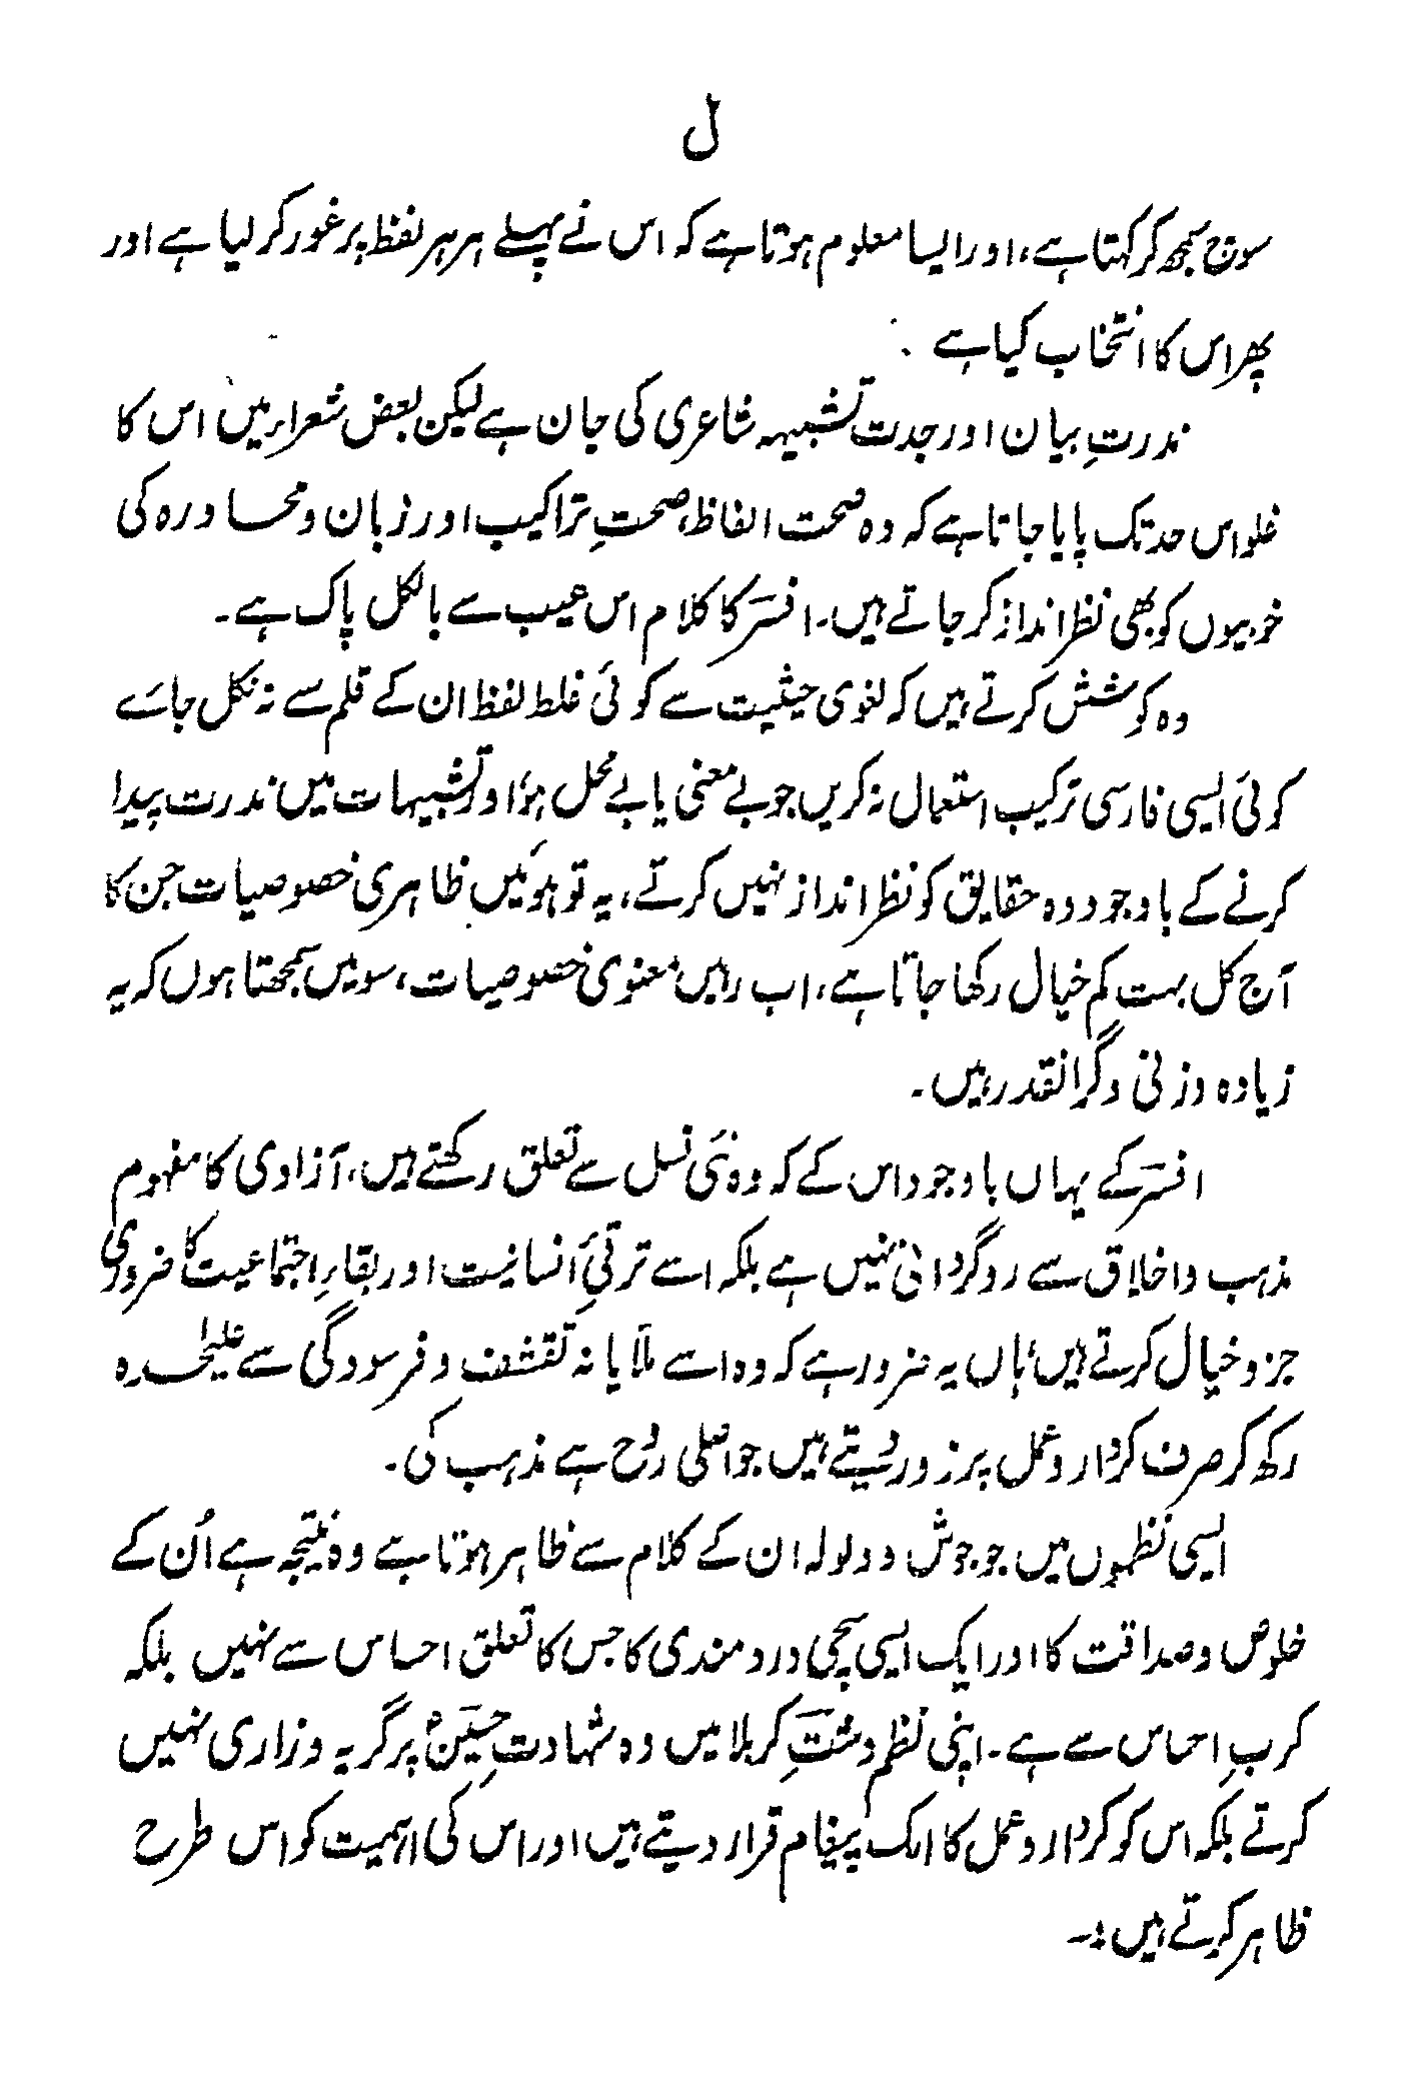 ل
سوچ سمجھ کر کہتا ہے، اور ایسا معلوم ہوتا ہے کہ اس نے پہلے ہر ہر لفظ پر غور کر لیا ہے اور
پھر اس کا انتخاب کیا ہے .
ندرتِ بیان اور جدت تشبیہہ شاعری کی جان ہے لیکن بعض شعراء میں اس کا
غلو اس حد تک پایا جاتا ہے کہ وہ صحت الفاظ، صحتِ تراکیب اور زبان و محاورہ کی
خوبیوں کو بھی نظر انداز کر جاتے ہیں۔ افسرؔ کا کلام اس عیب سے بالکل پاک ہے۔
وہ کوشش کرتے ہیں کہ لغوی حیثیت سے کوئی غلط لفظ ان کے قلم سے نہ نکل جائے
کوئی ایسی فارسی ترکیب استعمال نہ کریں جو بے معنی یا بے محل ہو، اور تشبیہات میں ندرت پیدا
کرنے کے باوجود وہ حقایق کو نظر انداز نہیں کرتے، یہ تو ہوئیں ظاہری خصوصیات جن کا
آج کل بہت کم خیال رکھا جاتا ہے، اب رہیں معنوی خصوصیات، سو میں سمجھتا ہوں کہ یہ
زیادہ وزنی و گرانقدر ہیں۔
افسرؔ کے یہاں باوجود اس کے کہ وہ نئی نسل سے تعلق رکھتے ہیں، آزادی کا مفہوم
مذہب و اخلاق سے روگردانی نہیں ہے بلکہ اسے ترقیٔ انسانیت اور بقاءِ اجتماعیت کا ضروری
جزو خیال کرتے ہیں، ہاں یہ ضرور ہے کہ وہ اسے ملّایانہ تقشف و فرسودگی سے علیٰحدہ
رکھ کر صرف کردار و عمل پر زور دیتے ہیں جو اصلی رُوح ہے مذہب کی۔
ایسی نظموں میں جو جوش و ولولہ ان کے کلام سے ظاہر ہوتا ہے وہ نتیجہ ہے اُن کے
خلوص و صداقت کا اور ایک ایسی سچی دردمندی کا جس کا تعلق احساس سے نہیں بلکہ
کربِ احساس سے ہے۔ اپنی نظم دشتِ کربلا میں وہ شہادتِ حسینؓ پر گریہ و زاری نہیں
کرتے بلکہ اس کو کردار و عمل کا ایک پیغام قرار دیتے ہیں اور اس کی اہمیت کو اس طرح
ظاہر کرتے ہیں :۔